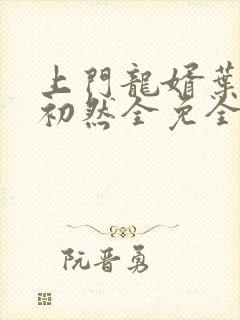 上門龍婿葉
初然全免全
阮晋勇